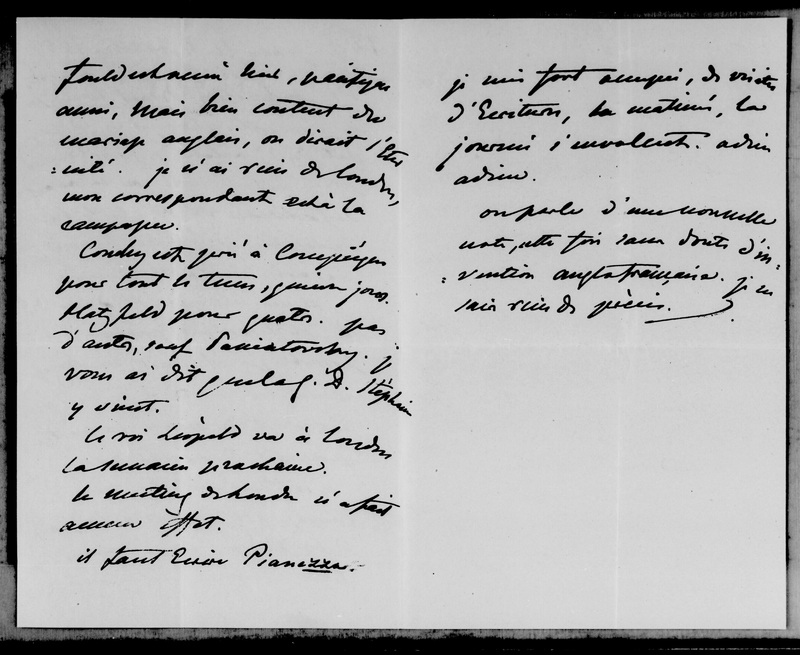 Fould est aussi lié, pacifique
aussi, mais bien content du
mariage anglais, on dirait l'Eter
=nité. je n'ai rien de londres,
mon correspondant est à la
campagne.
Cowley est prié à Compiègne
pour tout le tems, quinze jours.
Hatzfeld pour quatre. pas
d'autres, sauf Poniatowsky. je
vous ai dit que la g. D. Stéphanie
y vient.
le roi léopold va à londres
la semaine prochaine.
le meeting de londres n'a fait
aucun effet.
il faut Ecrire Pianezza.
je suis fort occupé, de visites
d'Ecritures, la matinée, la
journée s'envolent. adieu
adieu.
on parle d'une nouvelle
note, cette fois sans doute d'in-
=vention anglo française. je n'en
sais rien de précis.